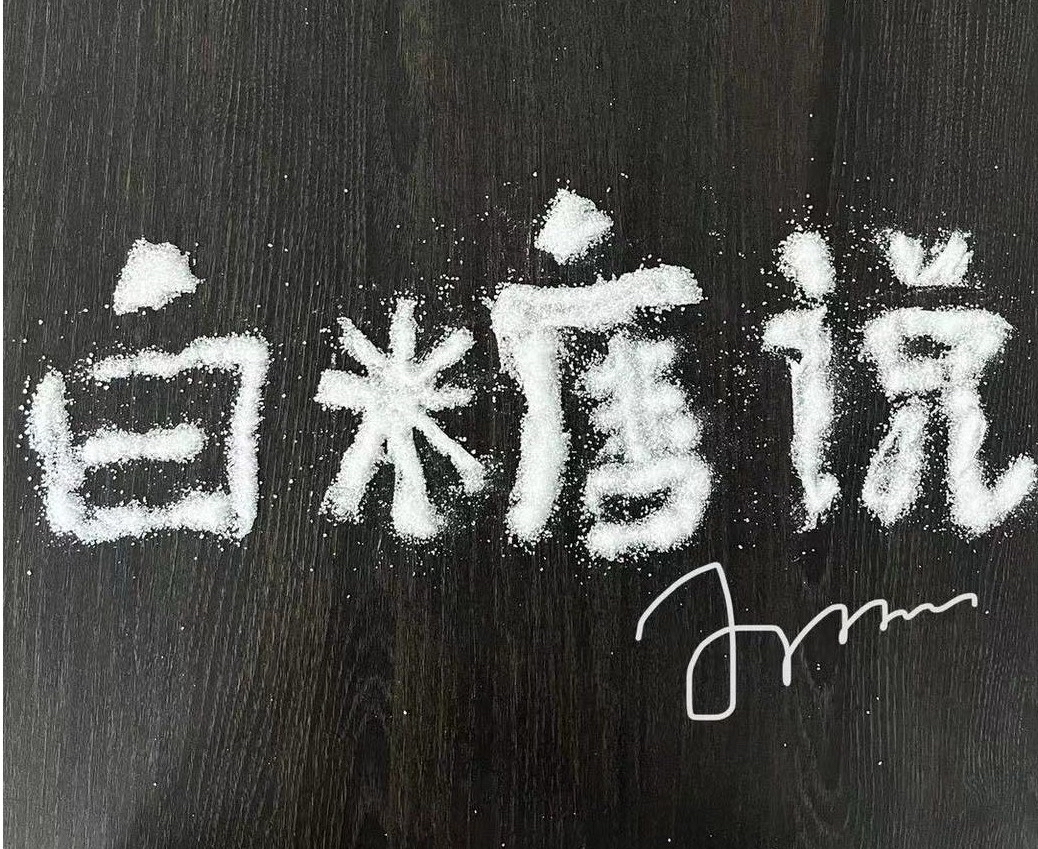 白糖说